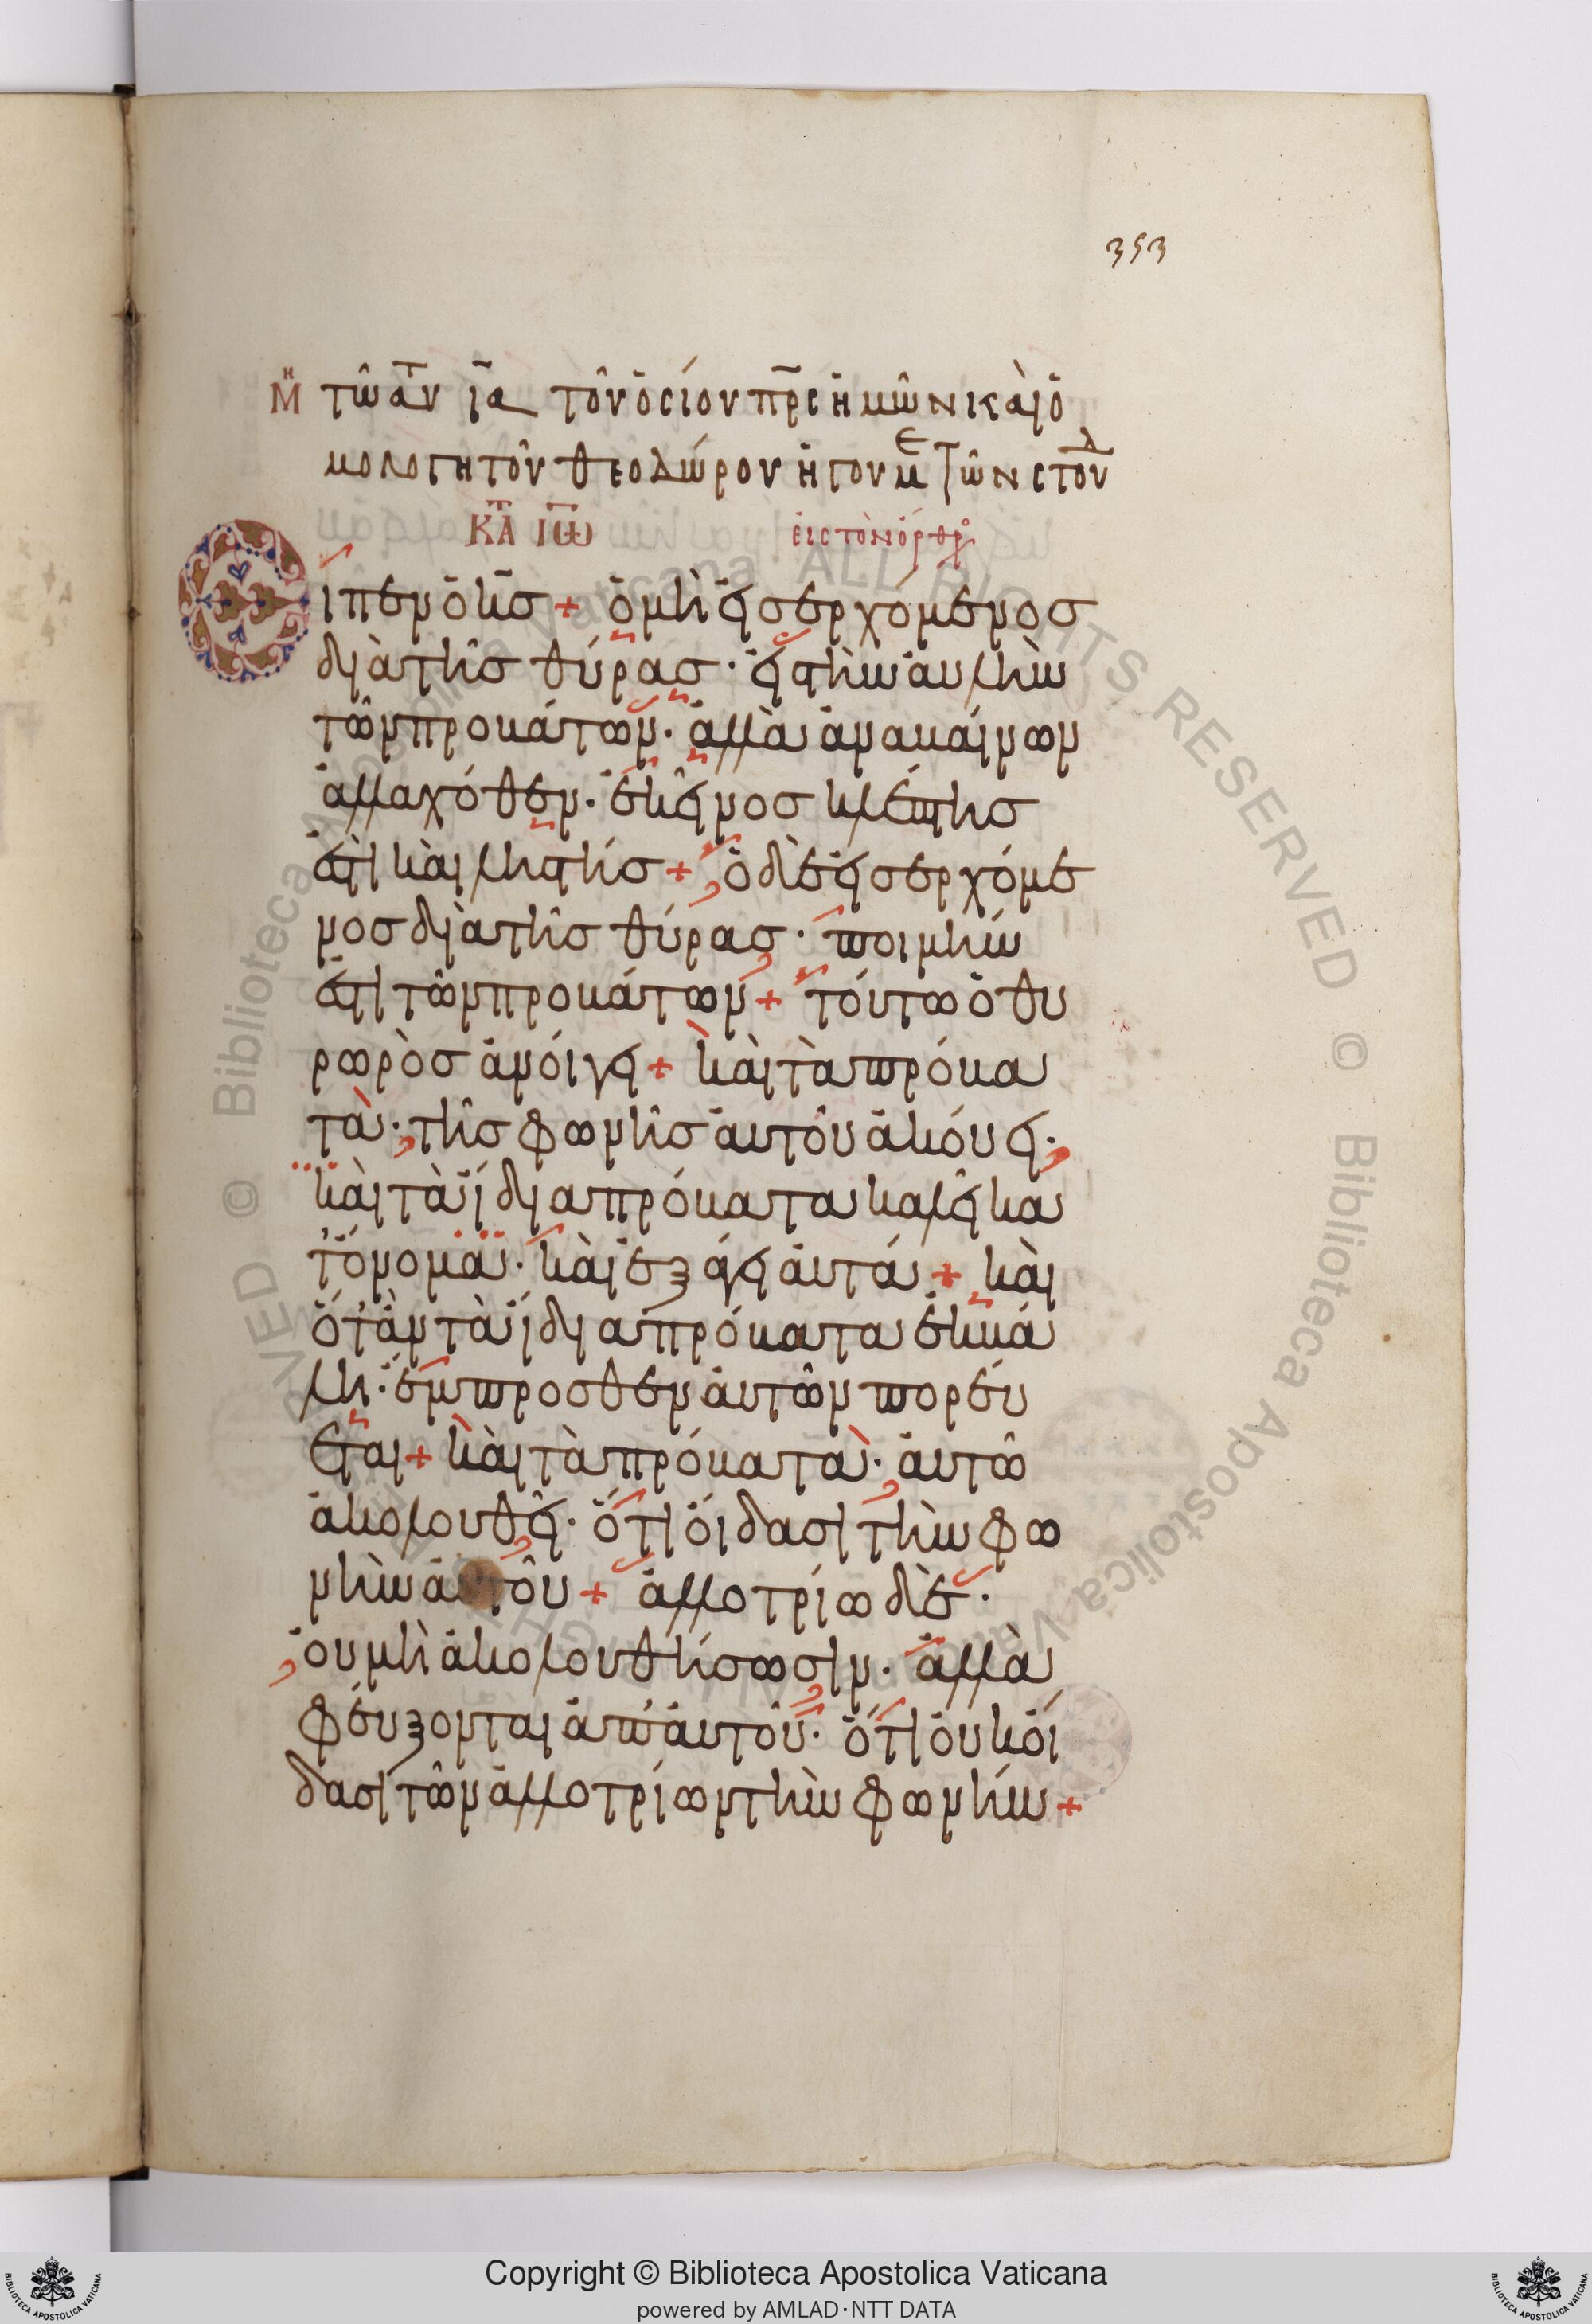 353
Μη τῶ αὐτ ια τοῦ ὁσίου πρς ἡμῶν καὶ ὁ
μολογητοῦ θεοδώρου ἡγουμε τῶν στουδ
ΚΑΤ ΙΩ εἰς τὸν ὄρθρ
Εἶπεν ὁ κς + ὁ μὴ εἰσερχόμενος
διὰ τῆς θύρας · εἰς τὴν αὐλὴν
τῶν προβάτων · ἀλλὰ ἀναβαίνων
ἀλλαχόθεν · ἐκεῖνος κλέπτης
ἐστὶ καὶ ληστής + ὁ δὲ εἰσερχόμε
νος διὰ τῆς θύρας · ποιμήν
ἐστι τῶν προβάτων + τούτω ὁ θυ
ρωρὸς ἀνοίγει + καὶ τὰ πρόβα
τα · τῆς φωνῆς αὐτοῦ ἀκούει ·
καὶ τὰ ἴδια πρόβατα καλεῖ κα
τ' ὄνομα · καὶ ἐξάγει αὐτά + καὶ
ὅταν τὰ ἴδια πρόβατα ἐκβά
λη · ἔμπροσθεν αὐτῶν πορεύ
εται + καὶ τὰ πρόβατα · αὐτῶ
ἀκολουθεῖ · ὅτι οἴδασι τὴν φω
νὴν αὐτοῦ + ἀλλοτρίω δὲ ·
οὐ μὴ ἀκολουθήσωσιν · ἀλλὰ
φεύξονται ἀπ' αὐτοῦ · ὅτι οὐκ οἴ
δασι τῶν ἀλλοτρίων τὴν φωνήν +
Copyright © Biblioteca Apostolica Vaticana
powered by AMLAD·NTT DATA